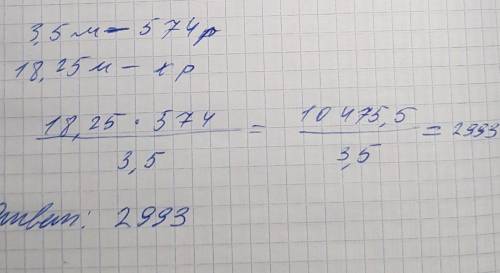 3,5 м - 574 р
18,25 м - х р
18,25 · 574 / 3,5 = 10 475,5 / 3,5 = 2993
Ответ: 2993